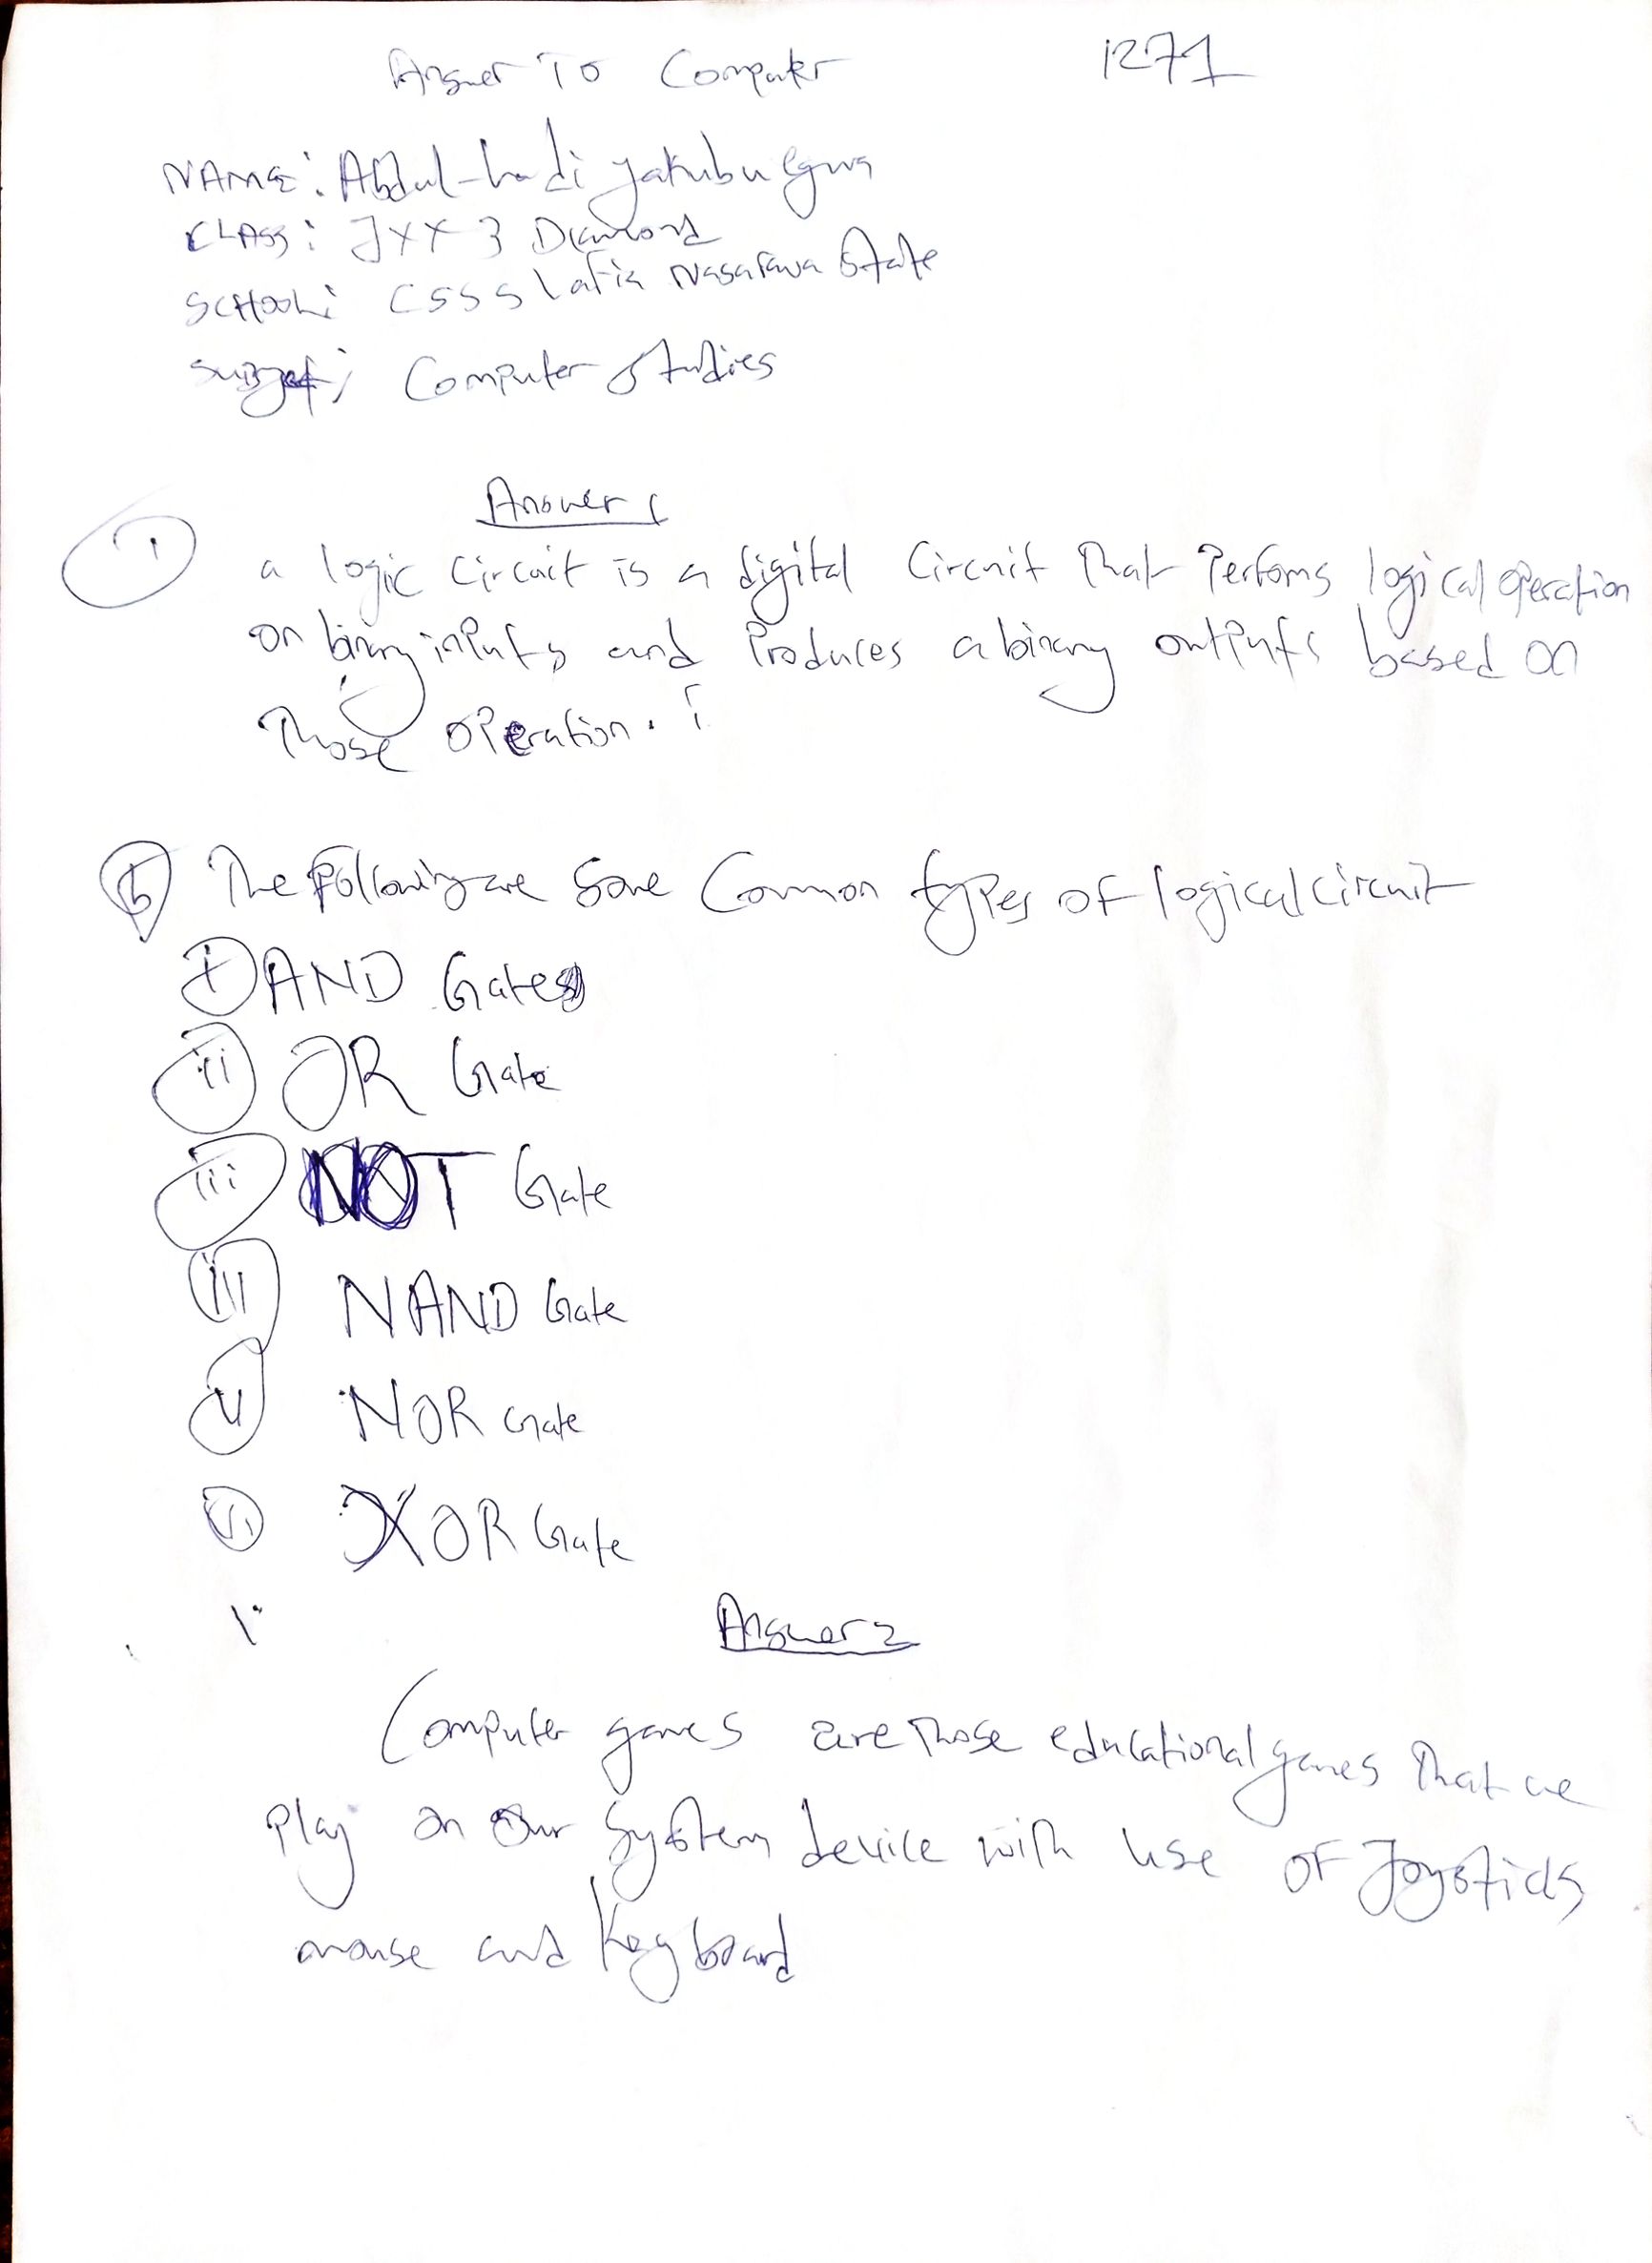 Answer To Computer 1271
NAME: Abdul-hadi Yakubu
CLASS: 3 Diamond
SCHOOL: CSSS Lafia Nasarawa State
Subject: Computer Studies
Answer 1
1 a logic circuit is a digital circuit that Performs logical operation
on binary inputs and Produces a binary outputs based on
Those operation.
b The following are some Common types of logical circuit
i AND Gates
ii OR Gate
iii NOT Gate
iiii NAND Gate
v NOR Gate
vi XOR Gate
Answer 2
Computer games are those educational games that we
Play on our system device with use of Joysticks
mouse and Keyboard